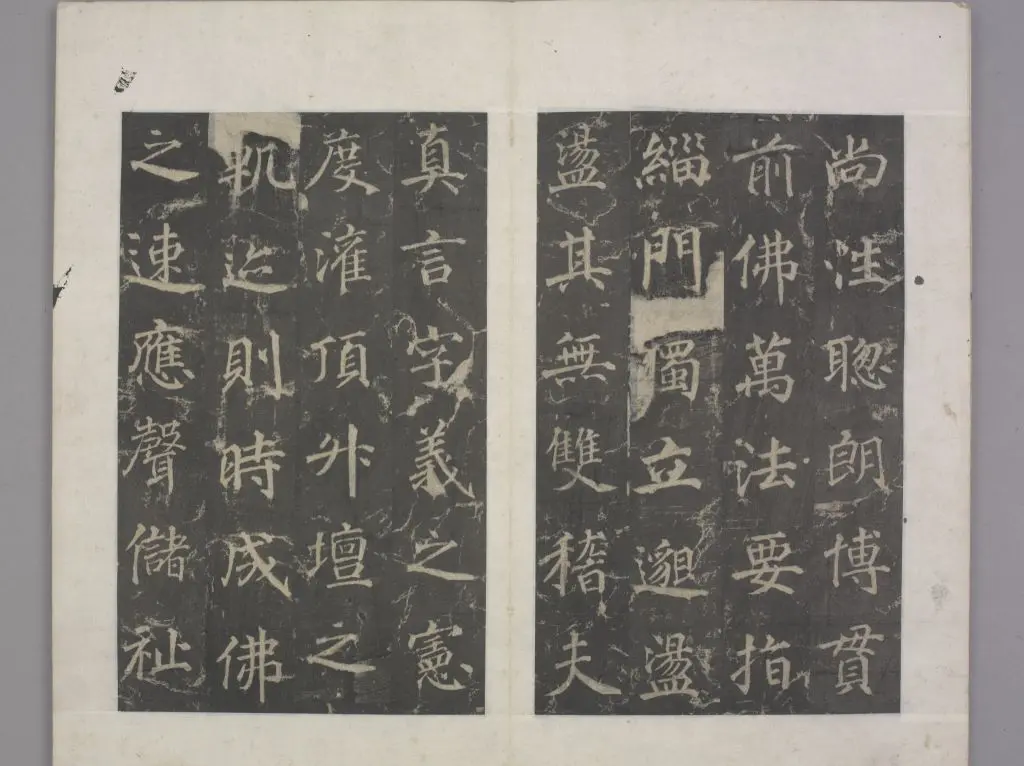 尚性聰朗博貫
前佛萬法要指
緇門獨立邈盪
盪其無雙稽夫
真言字義之憲
度灌頂升壇之
軌迹則時成佛
之速應聲儲祉